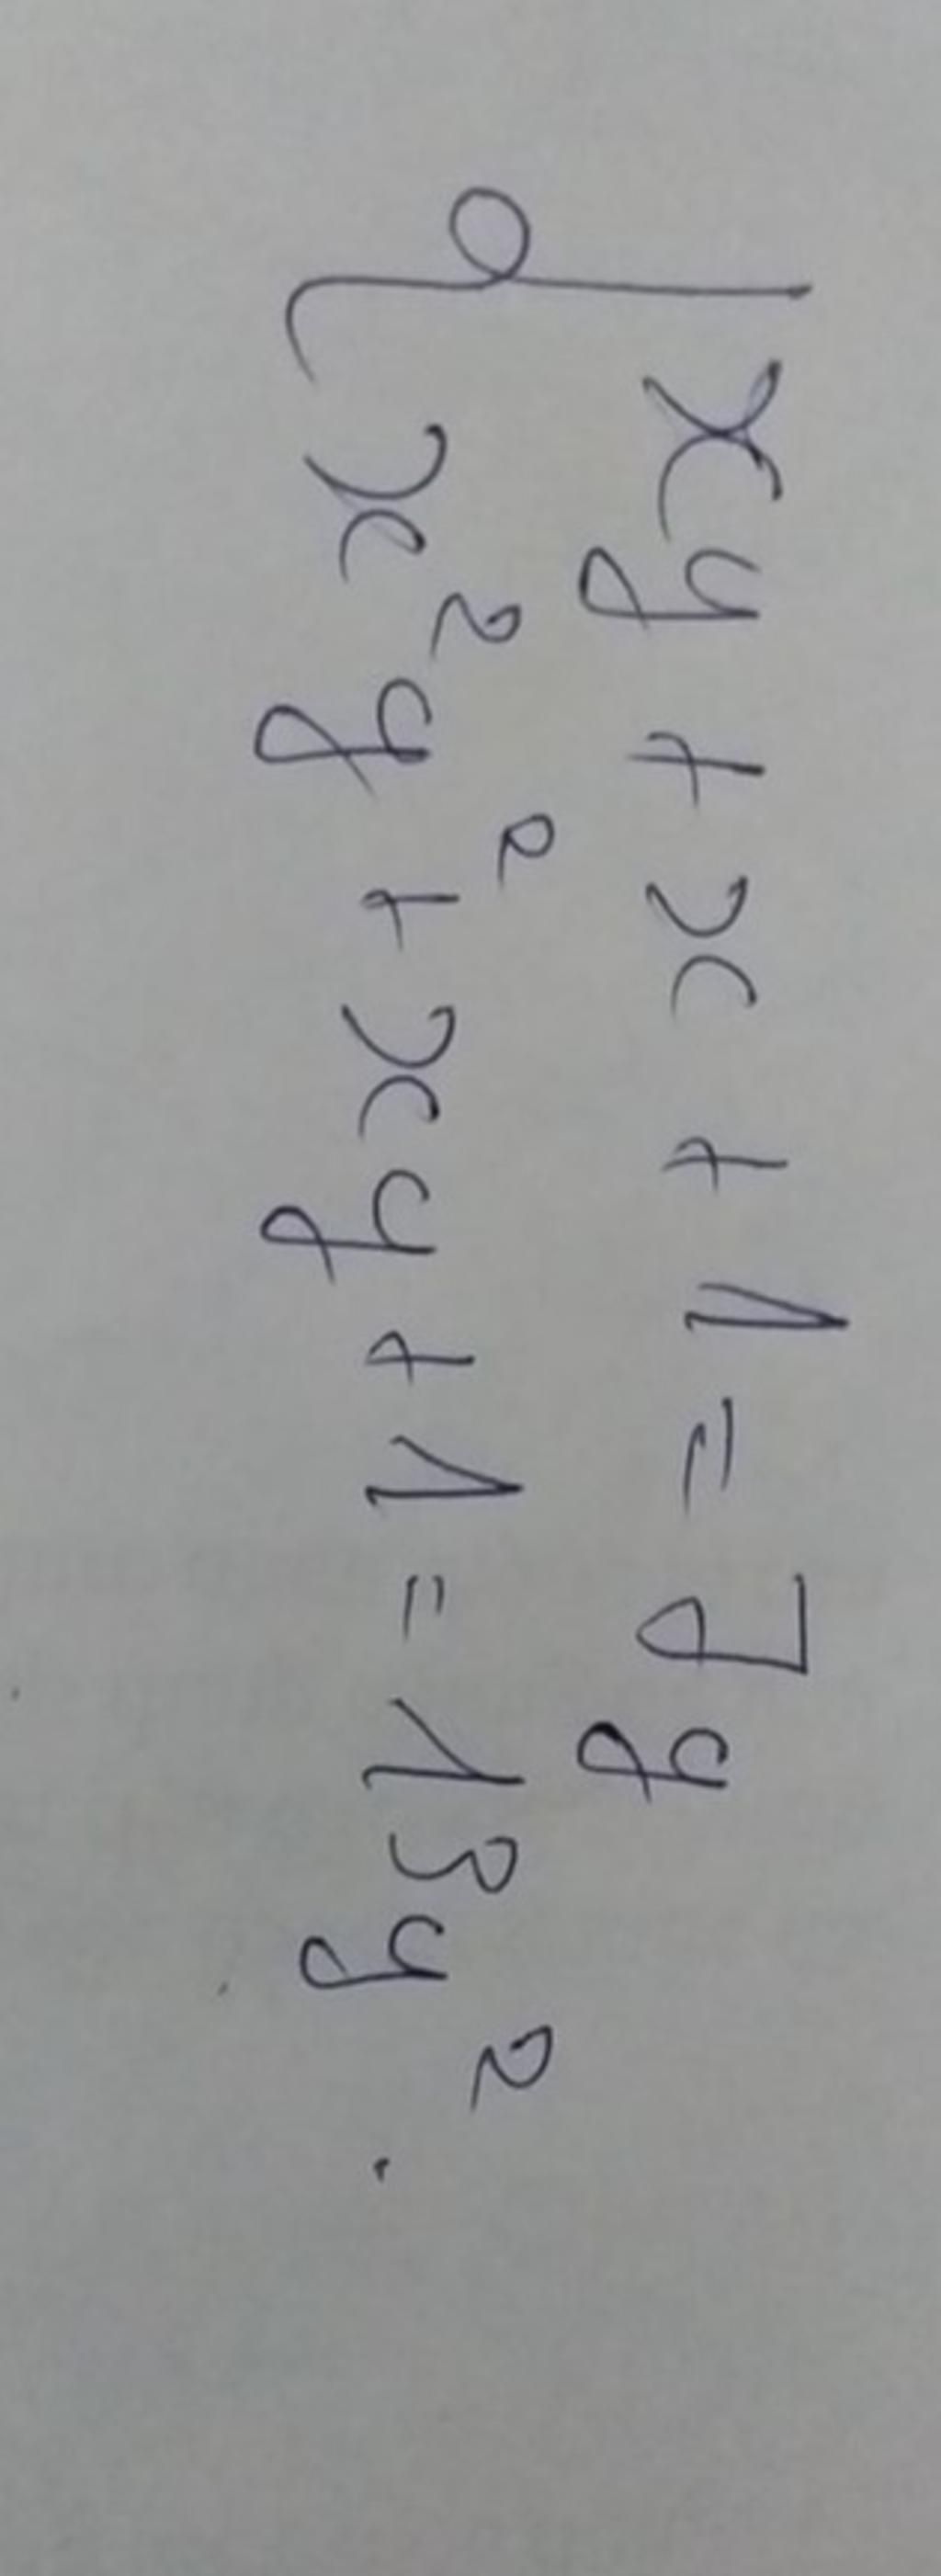 { xy + x + 1 = 7y
x²y² + xy + 1 = 13y².